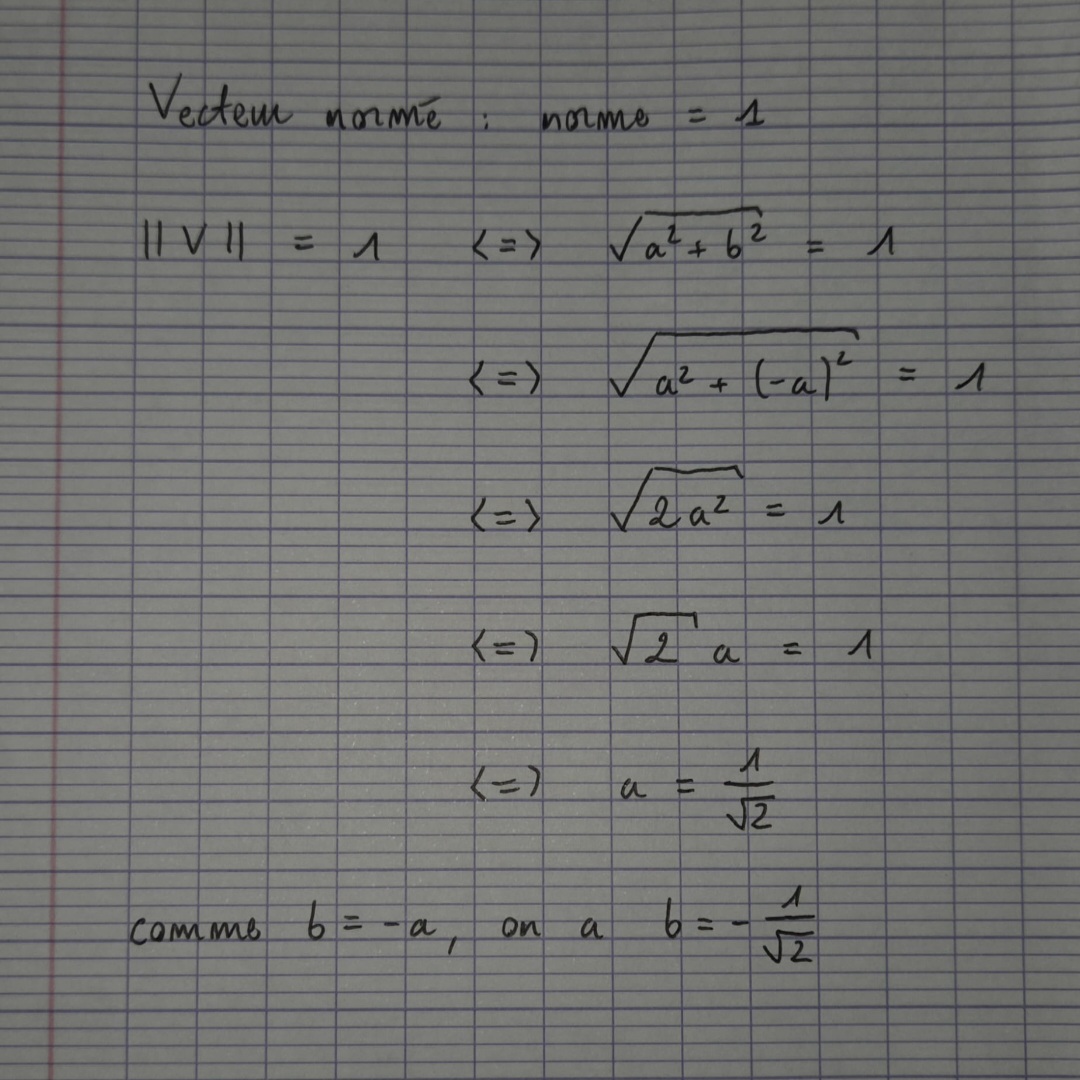 Vecteur normé : norme = 1
|| V || = 1 <=> √(a² + b²) = 1
<=> √(a² + (-a)²) = 1
<=> √(2a²) = 1
<=> √2 a = 1
<=> a = 1/√2
comme b = -a, on a b = -1/√2